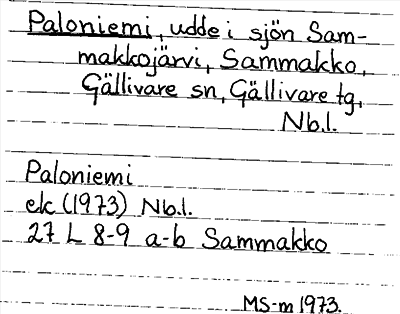 Paloniemi, udde i sjön Sam-
makkojärvi, Sammakko,
Gällivare sn, Gällivare tg,
Nb.l.
Paloniemi
ek (1973) Nb.l.
27 L 8-9 a-b Sammakko
MS-m 1973.